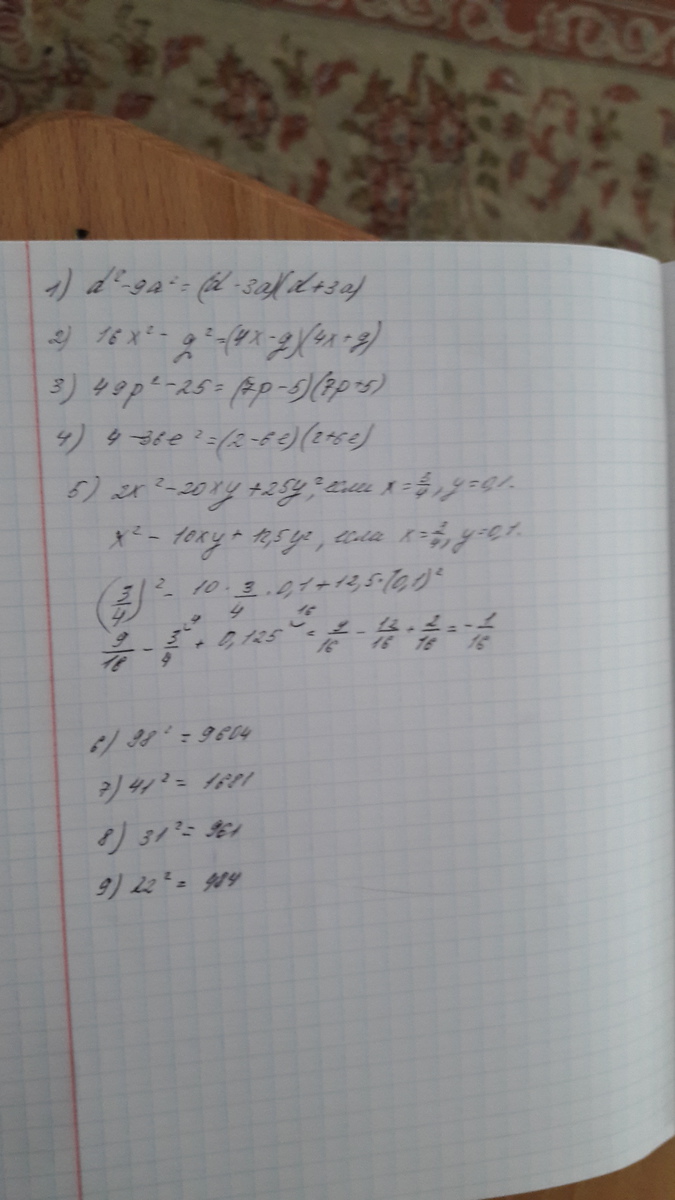 1) d²-9a²=(d-3a)(d+3a)
2) 16x²-g²=(4x-g)(4x+g)
3) 49p²-25=(7p-5)(7p+5)
4) 4-36e²=(2-6e)(2+6e)
5) 2x²-20xy+25y², если x=3/4, y=0,1.
x²-10xy+12,5y², если x=3/4, y=0,1.
(3/4)²-10·3/4·0,1+12,5·(0,1)²
9/16-3/4+0,125=9/16-12/16+2/16=-1/16
6) 98²=9604
7) 41²=1681
8) 31²=961
9) 22²=484